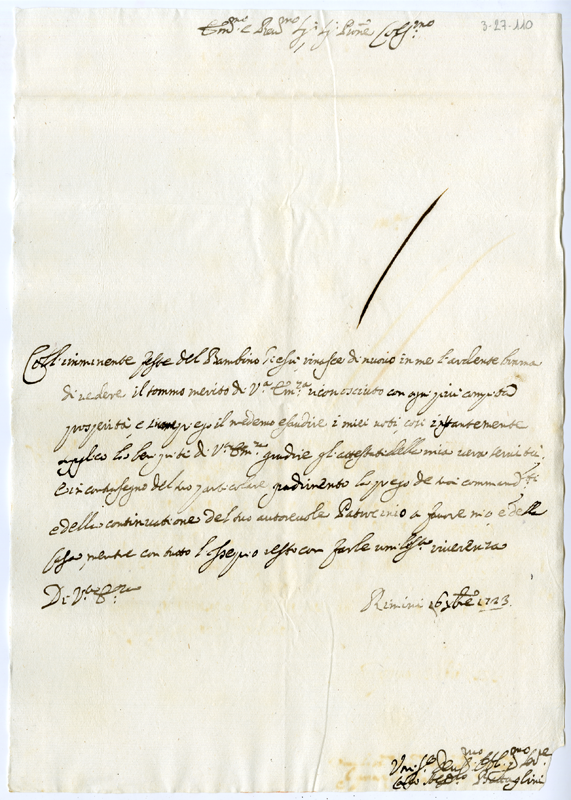 Em.mo e Rev.mo Sig.r Sig.r Pron.e Col.mo
3-27-110
Coll'imminente feste del Bambino Giesù rinasce di nuovo in me l'ardente brama
di vedere il sommo merito di V.a Em.za riconosciuto con ogni più compita
prosperità e il medemo esaudire i miei voti così instantemente
di V.a Em.za gradire gli attestati della mia vera servitù
e in contrasegno del suo particolare gradimento la prego de suoi comandi
e della continuatione del suo autorevole Patrocinio a favore mio e della
Casa, mentre con tutto l'ossequio resto con farle umiliss.a riverenza
Di V.a Em.za
Rimini 16 Xbre 1723.
Um.o Dev.mo Obl.mo Ser.e
Battaglini